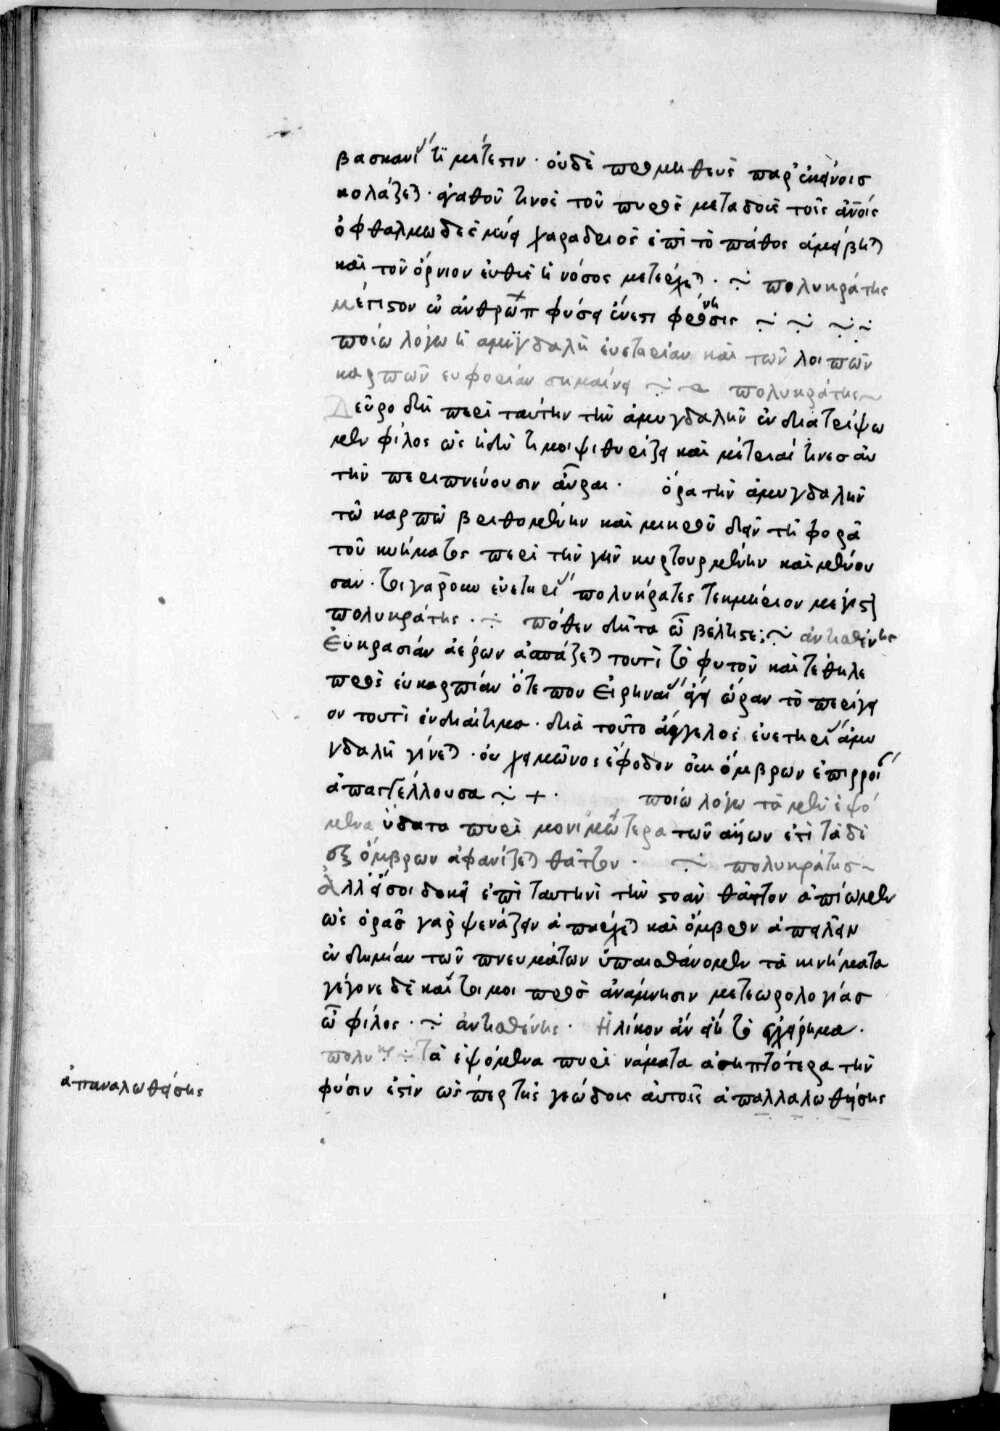 βασκανί τί μέτεστιν · οὐδὲ προμηθεὺς παρ' ἐκείνοις
κολάζεται · ἀγαθοῦ τινὸς τοῦ πυρὸς μεταδοὺς τοῖς ἀνοις
ὀφθαλμῶ δὲ χαραδριὸς ἐπὶ τὸ πάθος ἀμείβεται
καὶ τὸν ὄρνιον εὐθὺς ἡ νόσος μετέρχεται · πολυκράτης
μέγιστον ἐν ἀνθρώπ φύσει ἔνεστι φρόνησις
ποίω λόγω ἡ ἀμυγδαλῆ εὐετηρίαν καὶ τῶν λοιπῶν
καρπῶν εὐφορίαν σημαίνει πολυκράτης
Δεῦρο δὴ περὶ ταύτην τὴν ἀμυγδαλῆν ἐνδιατρίψω
μεν φίλος ὡς ἡδύ τί μοι ψιθυρίζει καὶ μέτριαί τινες ἂν
τὴν περιπνεύουσιν αὖραι · ὅρα τὴν ἀμυγδαλῆν
τῶ καρπῶ βριθομένην καὶ μικροῦ δεῖν τῆ φορᾶ
τοῦ κυήματος περὶ τὴν γῆν κυρτουμένην καὶ μένου
σαν · τί γὰρ οὐκ εὐετηρί πολύκρατες τεκμήριον μέγιστ
πολυκράτης · πόθεν δῆτα ὦ βέλτιστε; ἀντισθένης
Εὐκρασίαν ἀέρων ἀσπάζεται τουτὶ τὸ φυτὸν καὶ τέθηλε
πρὸς εὐκαρπίαν ὅτέ που εἰρηναί ἄγει ὥραν τὸ περίγει
ον τουτὶ ἐνδιαίτημα · διὰ τοῦτο ἄγγελος εὐετηρί ἀμυ
γδαλῆ γίνεται · οὐ χειμῶνος ἔφοδον οὐκ ὄμβρων ἐπιρροὶ
ἀπαγγέλλουσα + · ποίω λόγω τὰ μὲν ἑψό
μενα ὕδατα πυρὶ μονιμώτερα τῶν ἄλλων ἐστὶ τὰ δὲ
ἐξ ὄμβρων ἀφανίζεται θᾶττον · πολυκράτης
Ἀλλ' εἴ σοι δοκεῖ ἐπὶ ταυτηνὶ τὴν στοὰν θᾶττον ἀπίωμεν
ὡς ὁρᾶς γὰρ ψεκάζειν ἀπάρχεται καὶ ὄμβρον ἀπειλεῖν
ἐνδημίαν τῶν πνευμάτων ὑπαισθάνομεν τὰ κινήματα
γέγονε δὲ καί τι μοι πρὸς ἀνάμνησιν μετεωρολογίας
ὦ φίλος · ἀντισθένης · Ἡλίκον ἂν εἴη τὸ εὕρημα ·
πολυκρ Τὰ ἑψόμενα πυρὶ νάματα ἀσηπτότερα τὴν
φύσιν ἐστὶν ὥσπερ τῆς γεώδους αὐτοῖς ἀπαλλαλωθείσης
ἀπαναλωθείσης